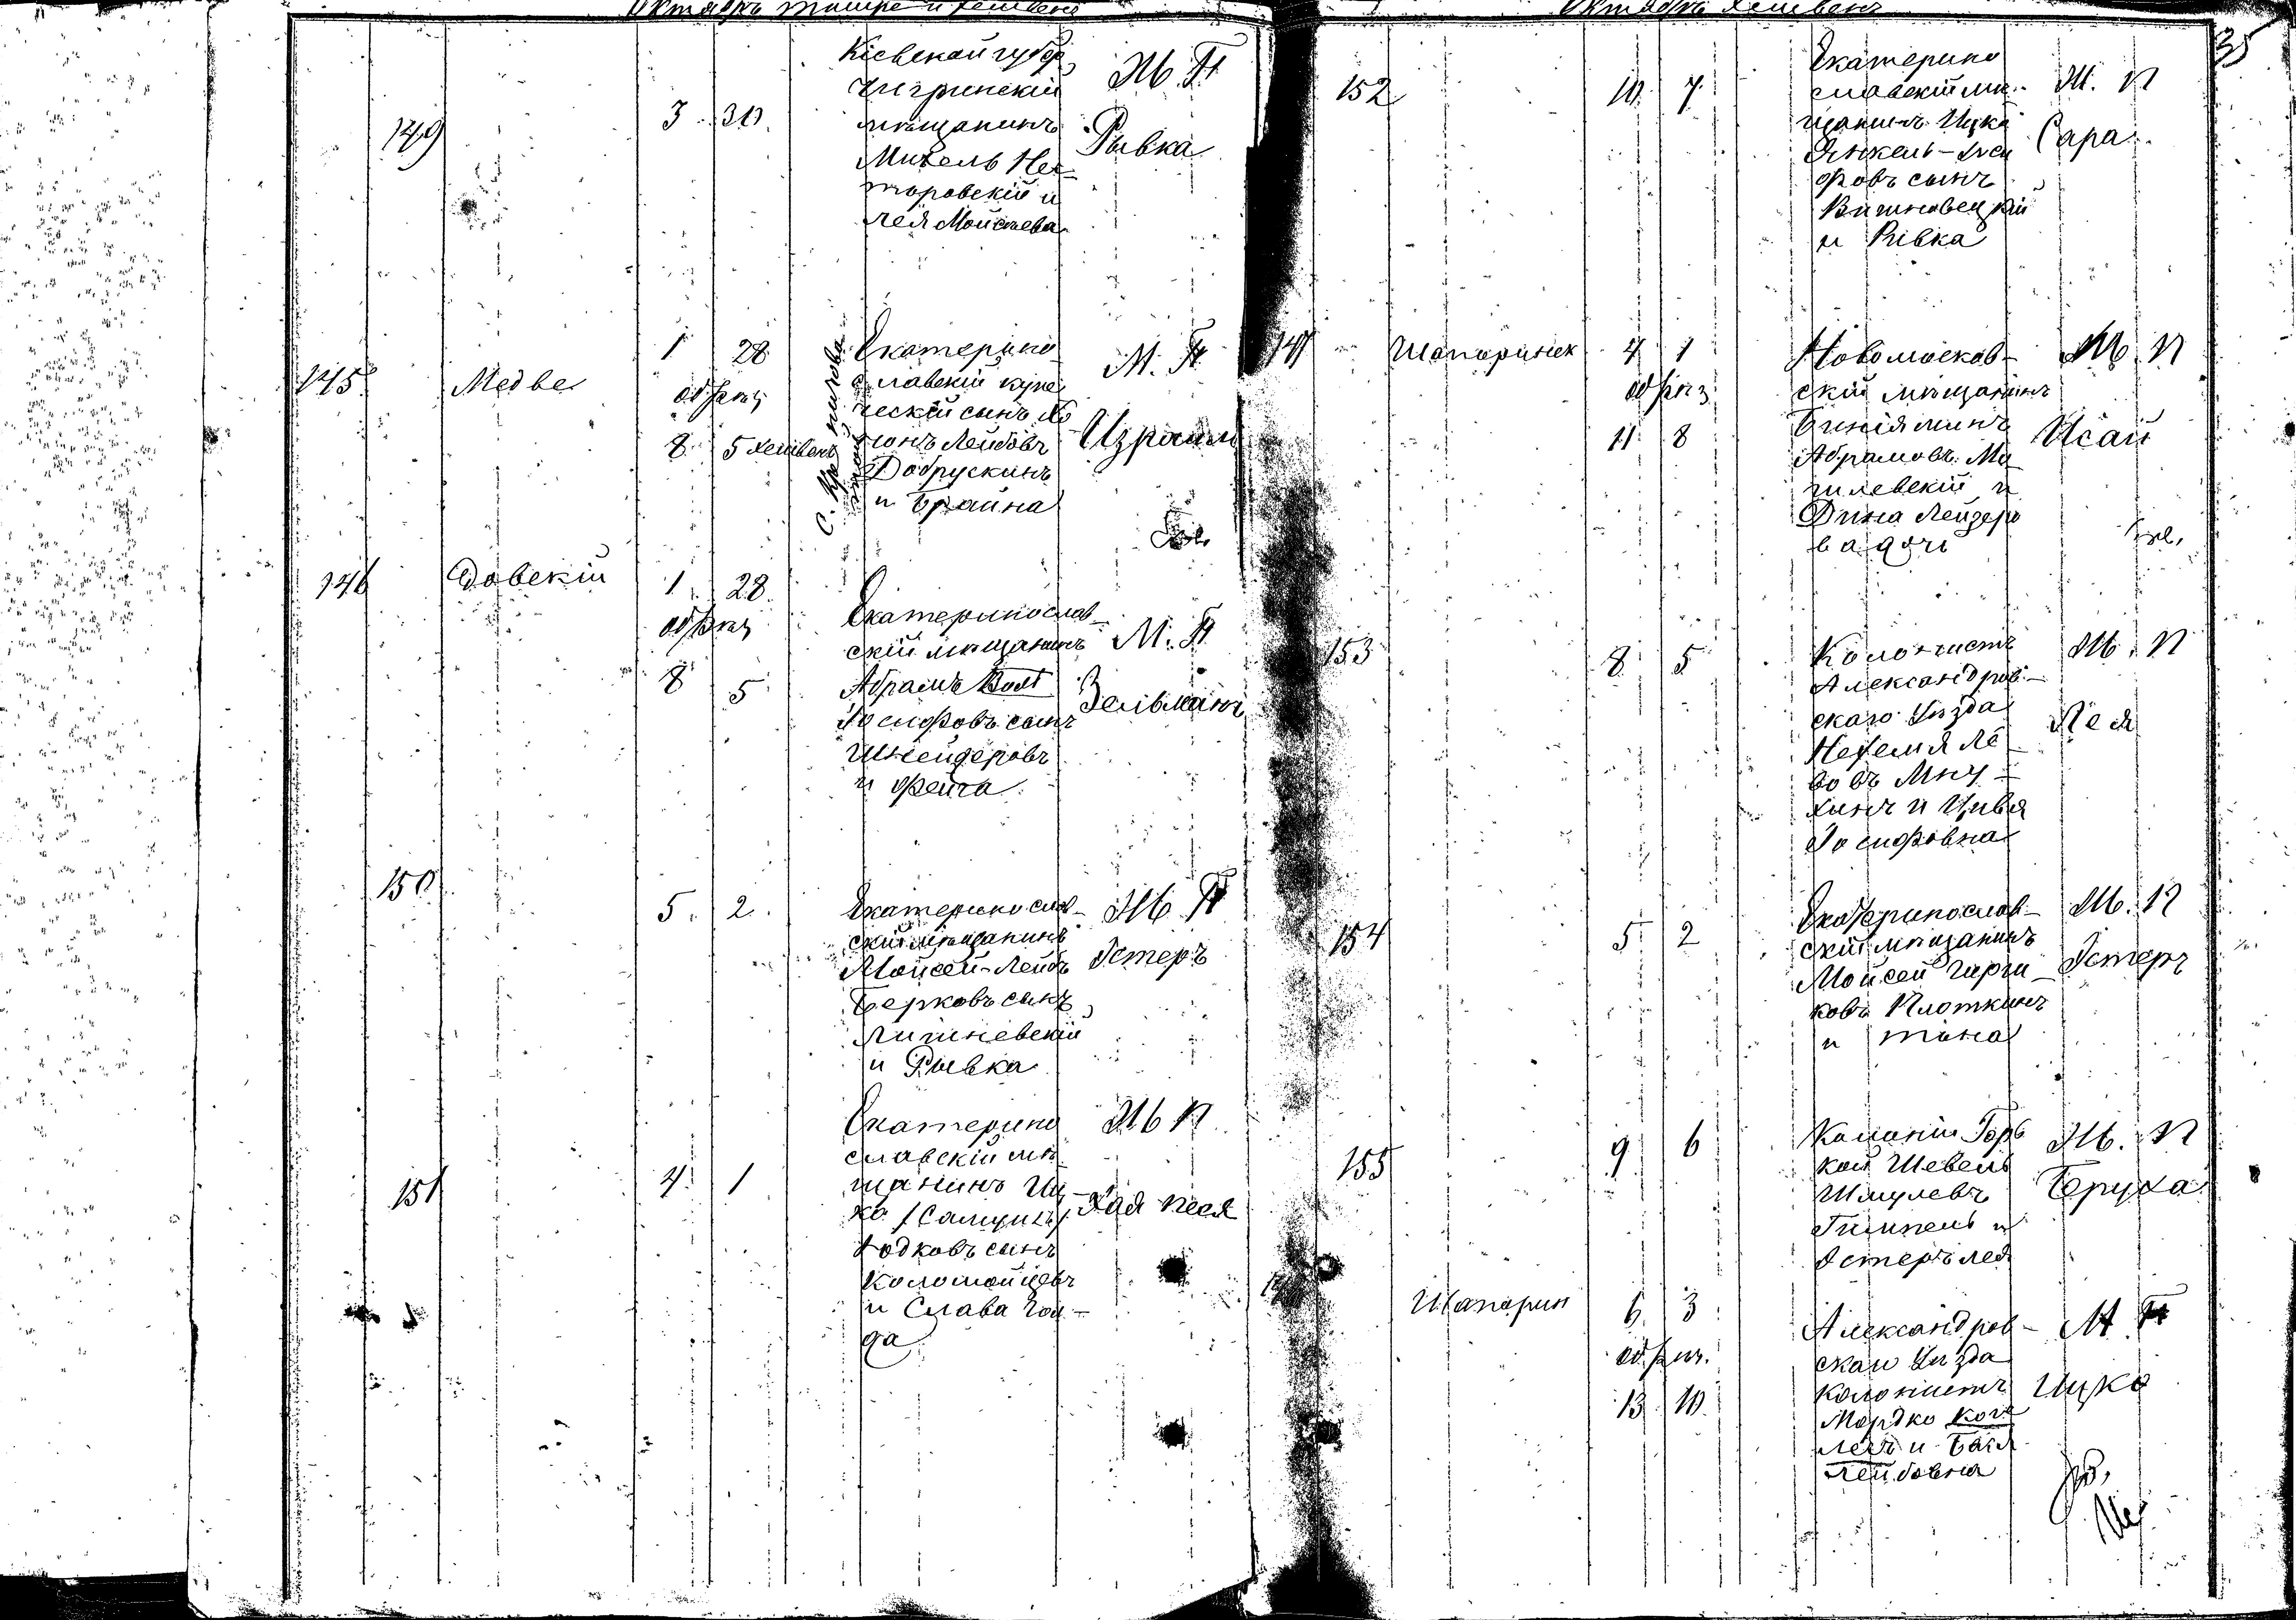 Октябрь тишре и хешвенъ
149
3 30
Кіевской губер
Чигринскій
мѣщанинъ
Михель Нес
торовскій и
Лея Мойсѣева
Ж. П
Рывка
145
Медве
1 28
обрѣз
8 5 хешвенъ
Екатерино
славскій купе
ческій сынъ
Лейбовъ
Добрускинъ
и Брайна
М. П
Израиль
146
довскій
1 28
обрѣз
8 5
Екатеринослав
скій мѣщанинъ
Абрамъ Волf
Іосифовъ сынъ
Шнейдеровъ
и Фейга
М. П
Зельманъ
150
5 2
Екатеринослав
скій мѣщанинъ
Мойсей-Лейбъ
Берковъ сынъ
Лишневскій
и Рывка
Ж П
Эстеръ
151
4 1
Екатерино
славскій мѣ
щанинъ Иц
ко /Самуилъ/
Іодковъ сынъ
Коломойцевъ
и Слава Гол
да
Ж П
Хая Песя
Октябрь хешвенъ
35
152
10 7
Екатерино
славскій мѣ
щанинъ Ицка
Янкель-Іоси
фовъ сынъ
Вишновецкій
и Ривка
Ж. П
Сара
147
Шапоринск
4 1
обрѣз
11 8
Новомосков
скій мѣщанинъ
Биніяминъ
Абрамовъ Мо
гилевскій и
Дина Лейзеро
ва дочь
М. П
Исай
153
8 5
Колонистъ
Александров
скаго уѣзда
Нехемя Ле
бовъ Мну
хинъ и Цивья
Іосифовна
Ж. П
Лея
154
5 2
Екатеринослав
скій мѣщанинъ
Мойсей Гирши
ковъ Плоткинъ
и Тана
Ж. П
Эстеръ
155
9 6
Колоніи Горь
кой Шевель
Шмулевъ
Гимпель и
Эстеръ Лея
Ж. П
Беруха
Шапорин
6 3
обрѣз.
13 10
Александров
скаго уѣзда
колонистъ
Мордко Кога
лецъ и Бася
Лейбовна
М. П
Ицко